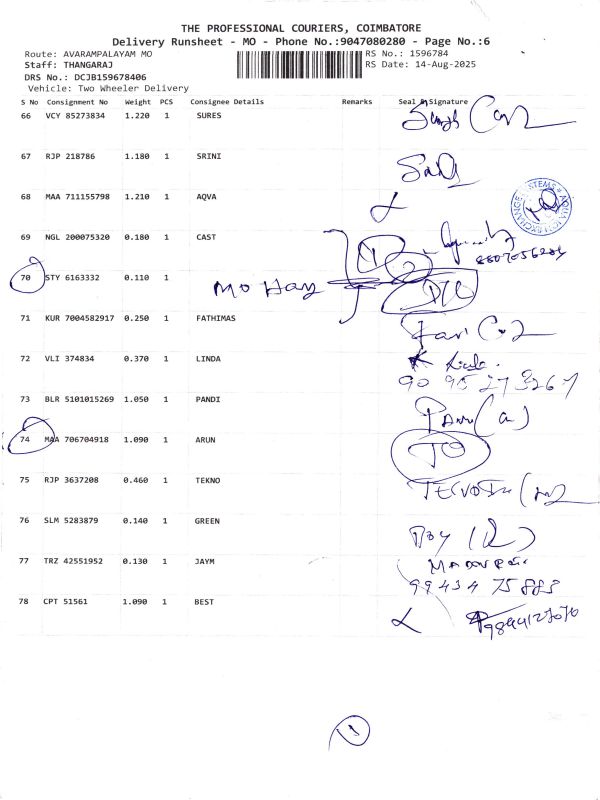 THE PROFESSIONAL COURIERS, COIMBATORE
Delivery Runsheet - MO - Phone No.:9047080280 - Page No.:6
Route: AVARAMPALAYAM MO RS No.: 1596784
Staff: THANGARAJ RS Date: 14-Aug-2025
DRS No.: DCJB159678406
Vehicle: Two Wheeler Delivery
S No Consignment No Weight PCS Consignee Details Remarks Seal & Signature
66 VCY 85273834 1.220 1 SURES
67 RJP 218786 1.180 1 SRINI
68 MAA 711155798 1.210 1 AQVA
69 NGL 200075320 0.180 1 CAST
70 STY 6163332 0.110 1
71 KUR 7004582917 0.250 1 FATHIMAS
72 VLI 374834 0.370 1 LINDA
90 95 27 3267
73 BLR 5101015269 1.050 1 PANDI
74 MAA 706704918 1.090 1 ARUN
75 RJP 3637208 0.460 1 TEKNO
76 SLM 5283879 0.140 1 GREEN
77 TRZ 42551952 0.130 1 JAYM
99434 75883
78 CPT 51561 1.090 1 BEST
1